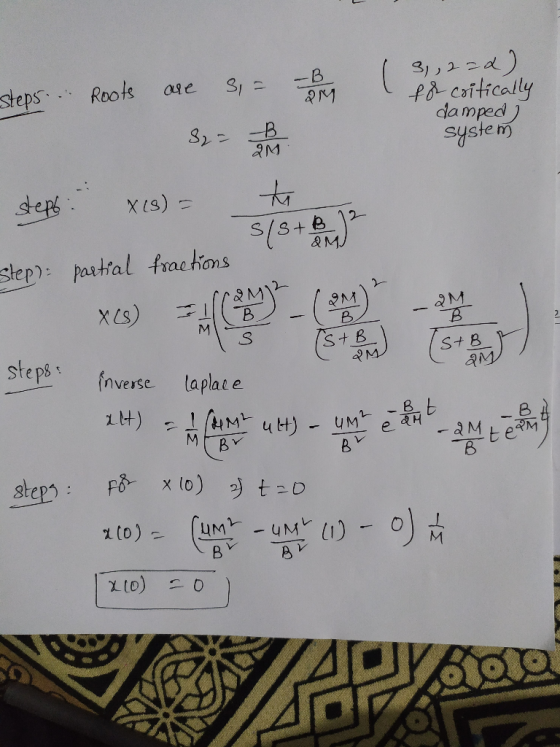 Step5 ∴ Roots are S1 = -B/2M ( S1,2 = α )
for critically
damped
system
S2 = -B/2M
Step6: ∴ X(s) = (1/M) / (S(S + B/2M)^2)
Step7: partial fractions
X(s) = 1/M ( (2M/B)^2 / S - (2M/B)^2 / (S + B/2M) - (2M/B) / (S + B/2M)^2 )
Step8:
inverse laplace
x(t) = 1/M ( 4M²/B² u(t) - 4M²/B² e^(-B/2M t) - 2M/B t e^(-B/2M t) )
Step9: For x(0) ⇒ t = 0
x(0) = ( 4M²/B² - 4M²/B² (1) - 0 ) 1/M
x(0) = 0